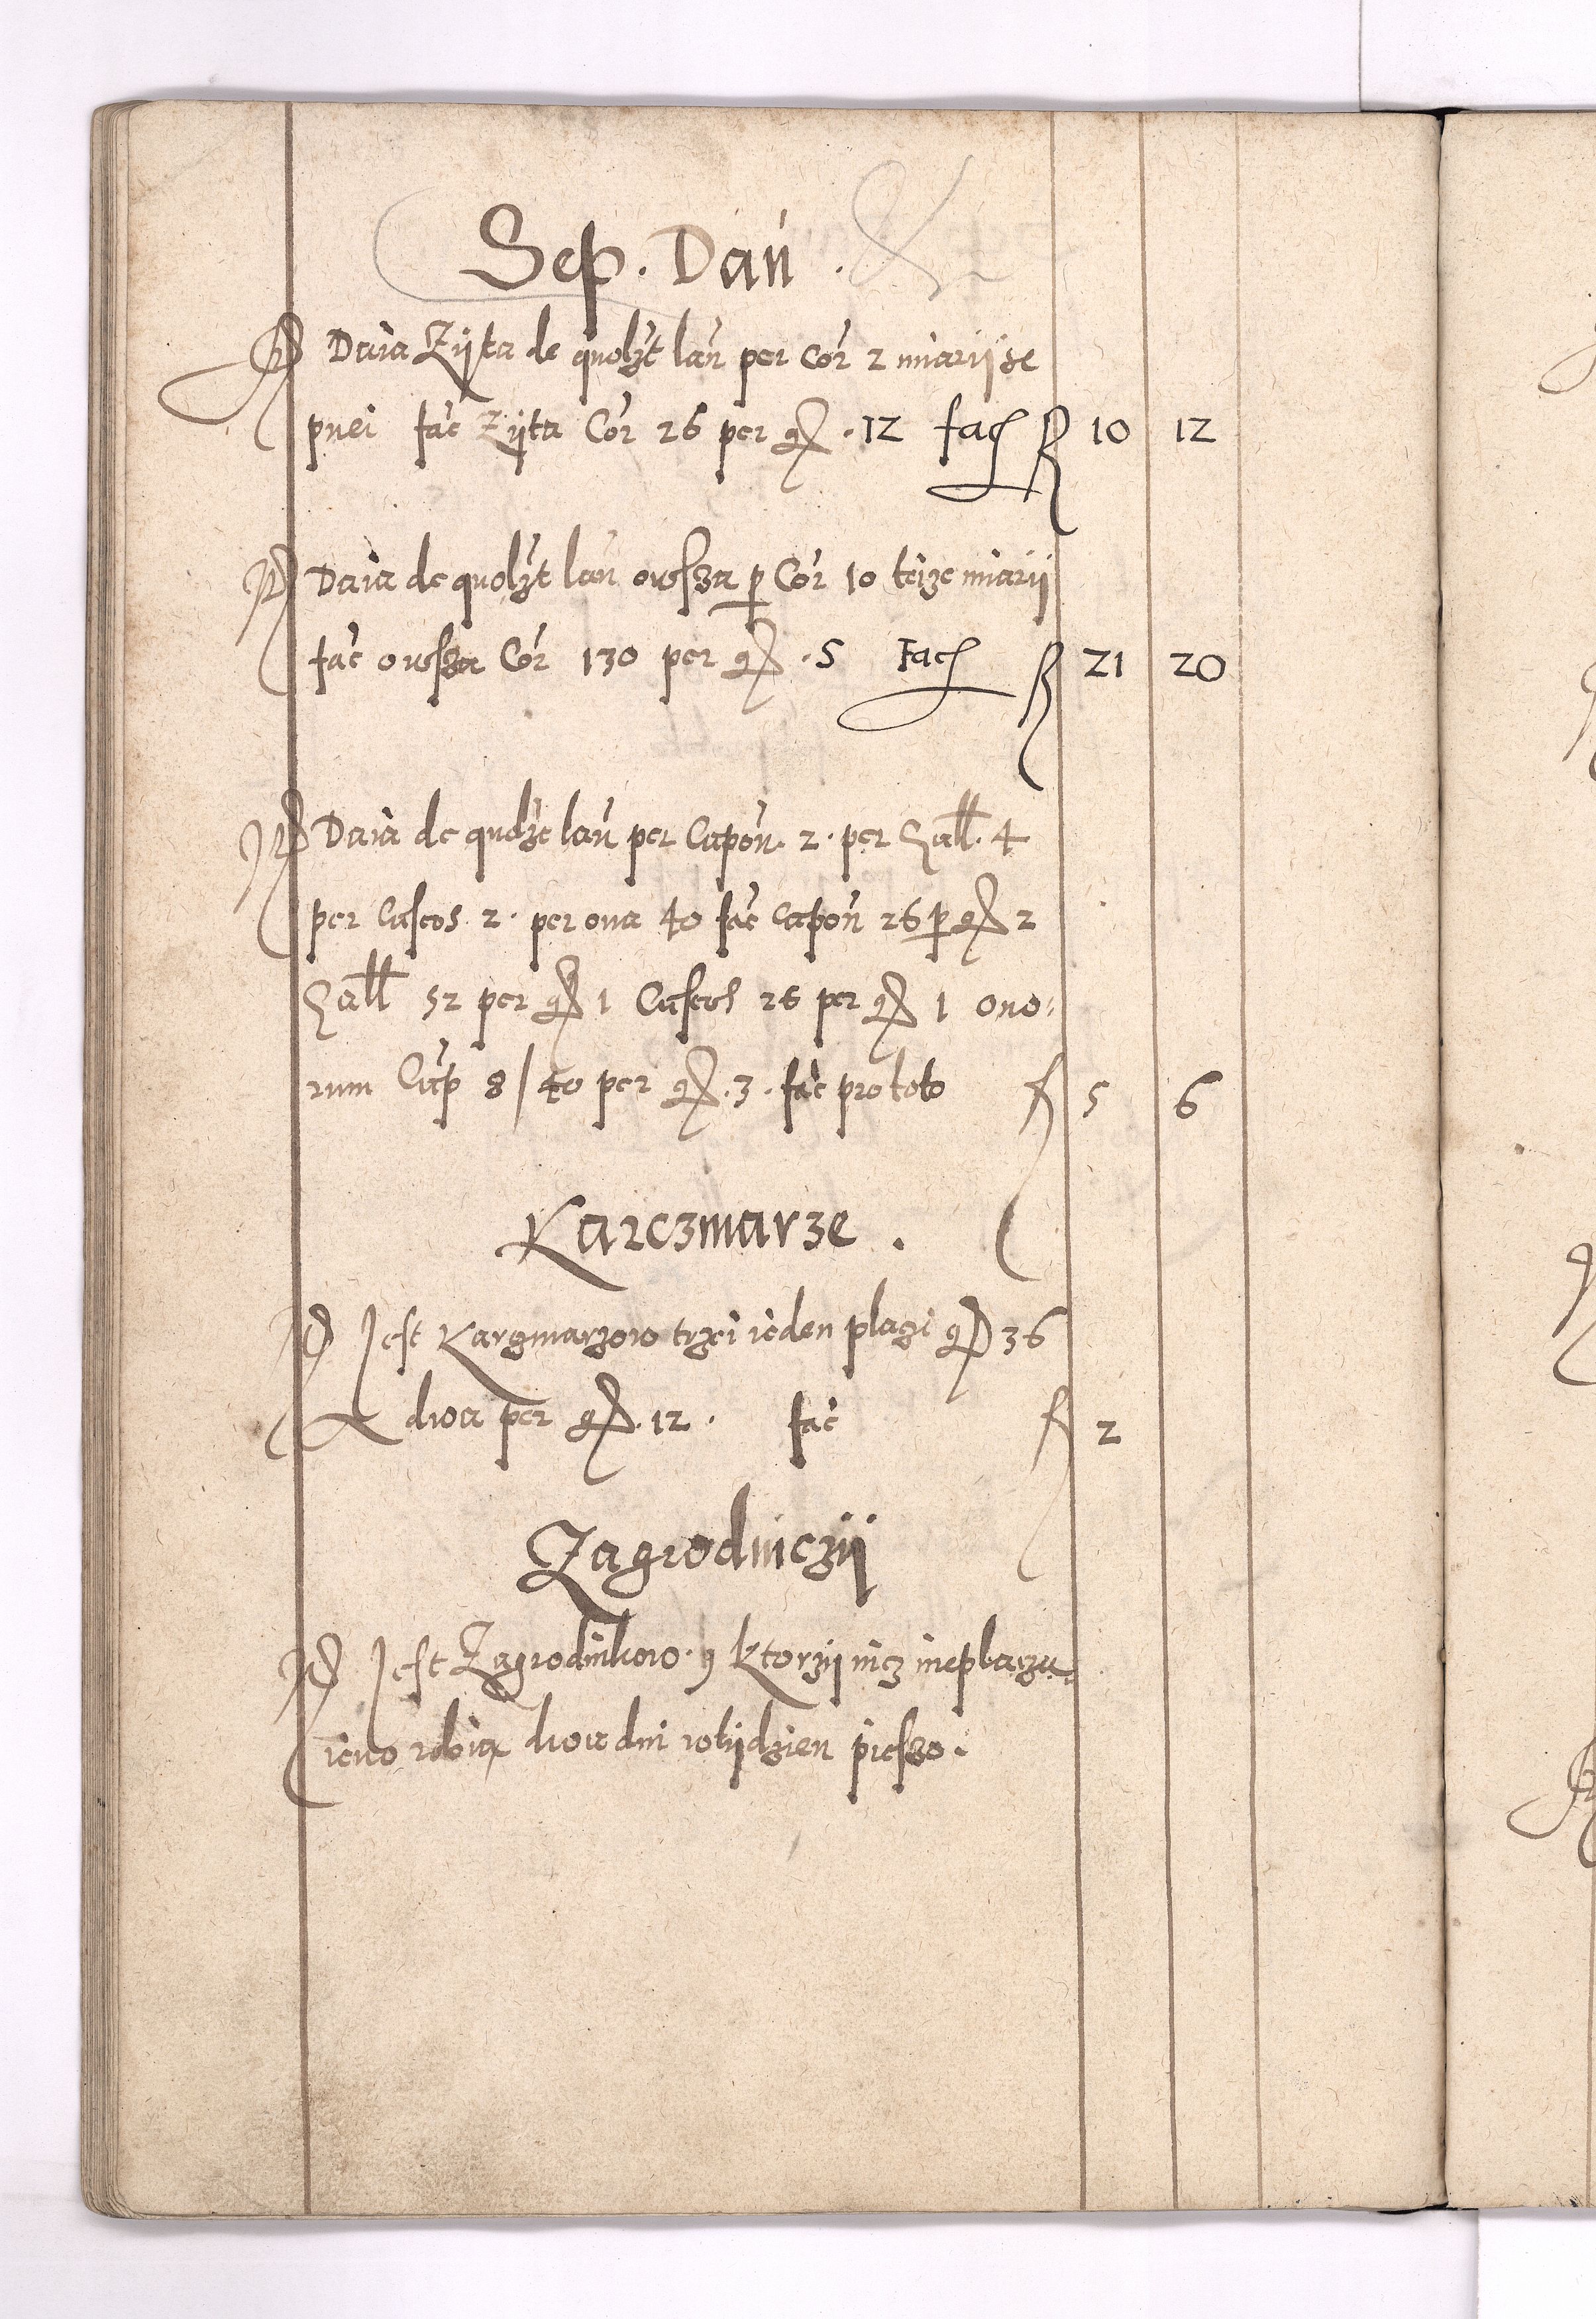 Sep. Dań.
Daia Zÿta de quolꝫt lań per Cor 2 miarÿ ze
pnei fac Zÿta Cor 26 per gͬ. 12 fac fl 10 12
It Daia de quolꝫt lan owsza p Cor 10 teize miarÿ
fac owsza Cor 130 per gͬ. 5 Fac fl 21 20
It Daia de quolꝫt lań per Capon. 2. per Gall. 4
per Caseos 2. per oua 40 fac Capon 26 p gͬ 2
Gall 52 per gͬ 1 Caseos 26 per gͬ 1 ouo:
rum Cap 8/40 per gͬ. 3. fac pro toto fl 5 6
Karczmarze.
It Jest Karczmarzow trzei ieden plaazi gͬ 36
dwa per gͬ. 12. fac fl 2
Zagrodniczÿ
It Jest Zagrodnikow. 9 ktorzÿ nicz nieplacza
ieno robia dwa dni wtÿdzien pieszo.